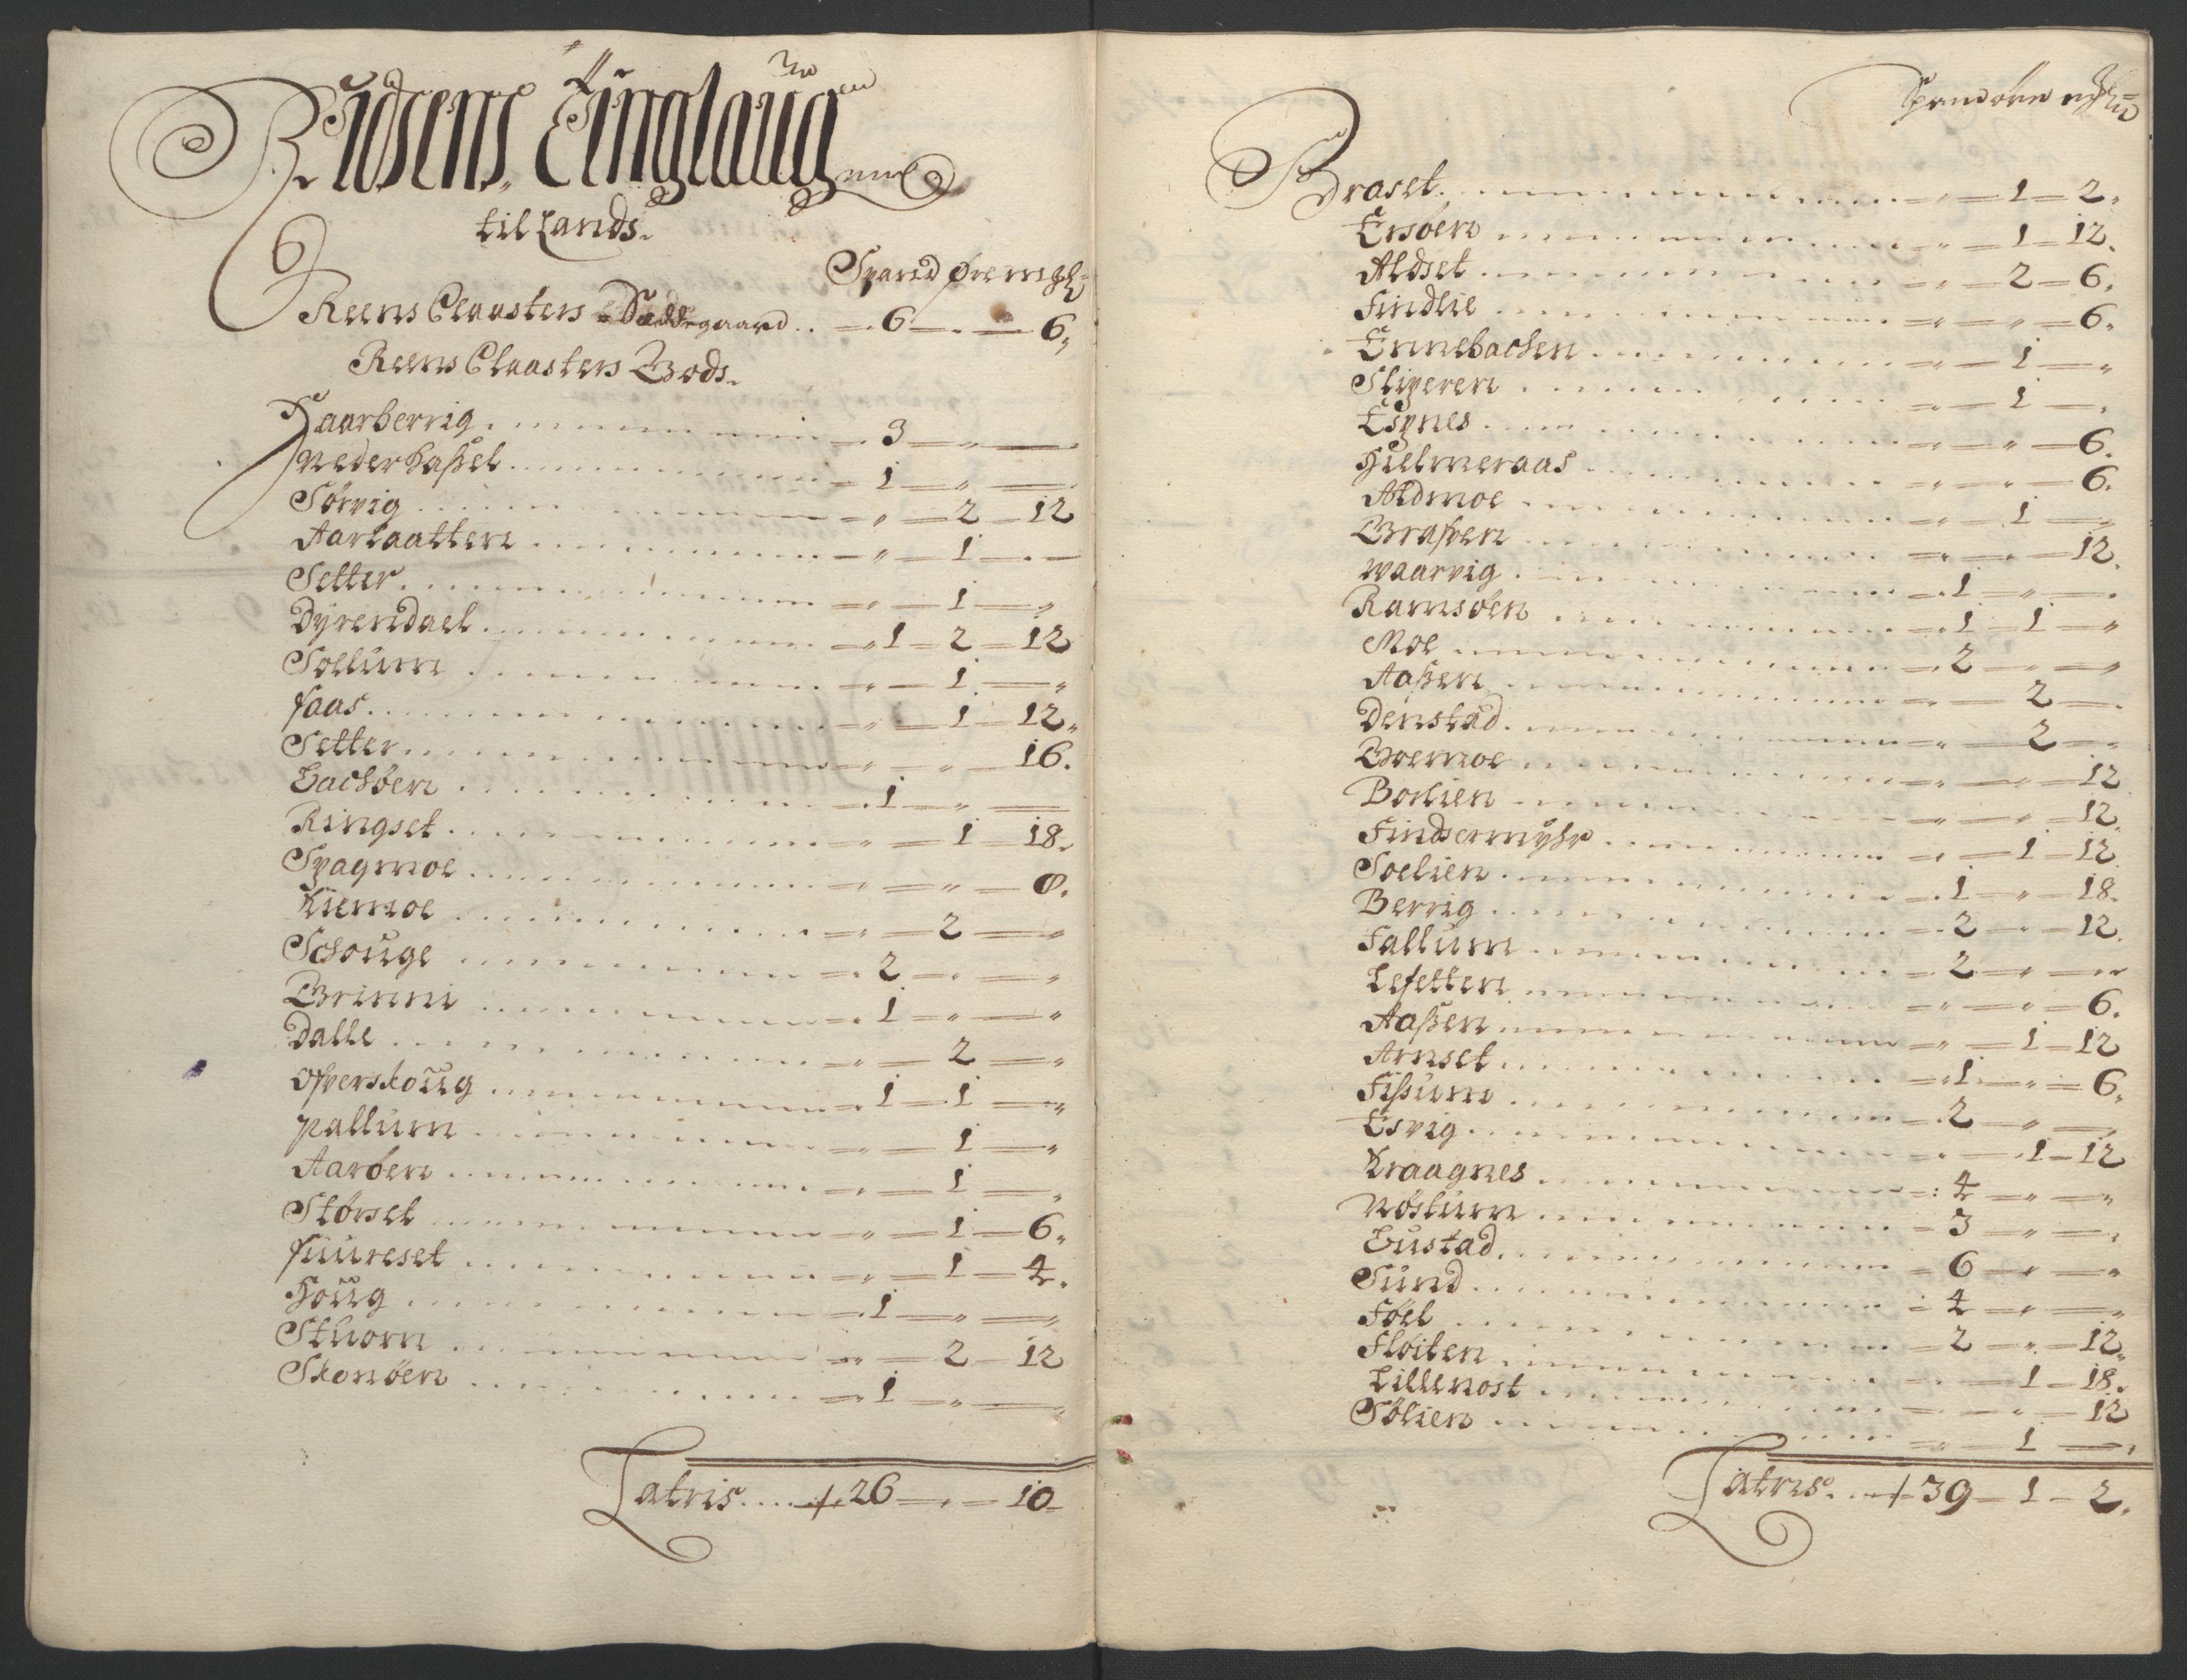 Bidsens Tinglaug
til Lands.
Spand øre mgl
Reens Closters Sædegaard .. 6 — " — 6,
Reens Closters Gods.
Haarberrig . 3 — " —
Nederhaßel . 1 — " —
Sørvig . " — 2 — 12
Aarlaatten . " — 1 — "
Setter . " — 1 — "
Dyrendael . 1 — 2 — 12
Sollum . " — 1 — "
faas . " — 1 — 12
Setter . " — " — 16.
Hachøen . 1 — " —
Ringset . " — 1 — 18.
Spagmoe . " — " —
Liemoe . " — 2 — "
Schouge . 2 — " — "
Grinni . 1 — " — "
Dalle . " — 2 — "
Ofverskoug . 1 — 1 — "
pallum . " — 1 — "
Aarøen . " — 1 — "
Størset . " — 1 — 6.
fuureset . " — 1 — 4.
Houg . 1 — " — "
Stuorn . " — 2 — 12
Skonøen . 1 — " — "
Latris .... 26 — " — 10
Spand øre mgl
Braset . " — 1 — 2.
Ersøen . " — 1 — 12.
Aldset . " — 2 — 6.
Findlie . " — " — 6.
Ennebachen . " — 1 — "
Sliperen . " — 1 — "
Espnes . " — " — 6.
Hielmeraas . " — " — 6.
Aldmoe . " — 1 — "
Grafven . " — " — 12.
Waarvig . 1 — " — "
Ramsøen . 1 — 1 — "
Moe . 2 — " — "
Aaßen . " — 2 — "
Denstad . " — 2 — "
Goemoe . " — " — 12
Borlien . " — " — 12.
Findsermyhr . " — 1 — 12
Soelien . 1 — " — 18.
Berrig . 2 — " — 12.
Fallum . 2 — " — "
Lefetten . " — " — 6.
Aaßen . " — 1 — 12
Arnset . 1 — " — 6.
Fißum . 2 — " — "
Esvig . " — 1 — 12
Kraagnes . 4 — " — "
Nøstum . 3 — " — "
Hustad . 6 — " — "
Sund . 4 — " — "
Føel . 2 — " — 12.
Fløiten . " — 1 — 18.
Lillenost . " — " — 12
Sølien . " — 1 — "
Latris . 39 — 1 — 2.